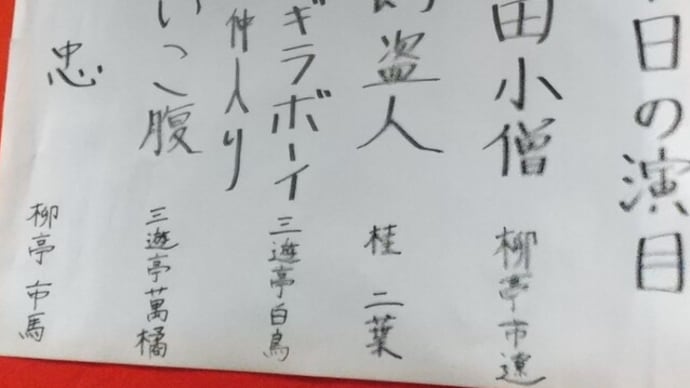 日の演目
田小僧 柳亭市遼
盗人 桂二葉
ギラボーイ 三遊亭白鳥
仲入り
いっこ腹 三遊亭萬橘
忠 柳亭市馬